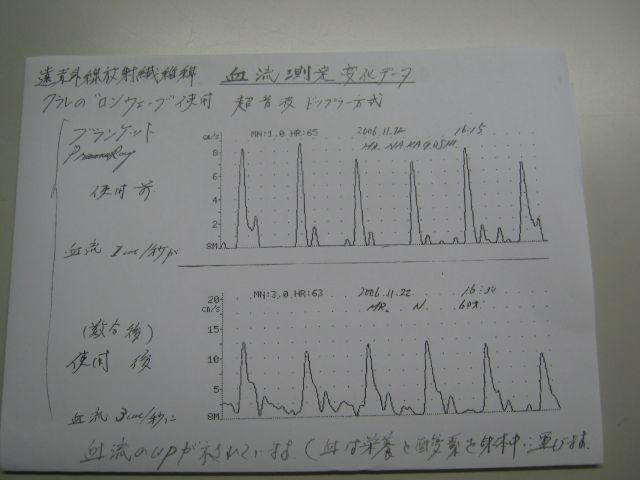 遠赤外線放射繊維 血流測定変化データ
クラレの"ロンウェーブ"使用 超音波 ドップラー方式
ブランケット
cm/s MN:1.0 HR:65 2006.11.22 16:15
MR.
8
使用前 6
4
2
血流 1cm/秒が 0MM
20 MN:3.0 HR:63 2006.11.22 16:34
cm/s MR. N. 60才
(数分後) 15
使用後 10
5
血流 3cm/秒に 0MM
血流のupが示されています。(血は栄養と酸素を身体中に運びます。